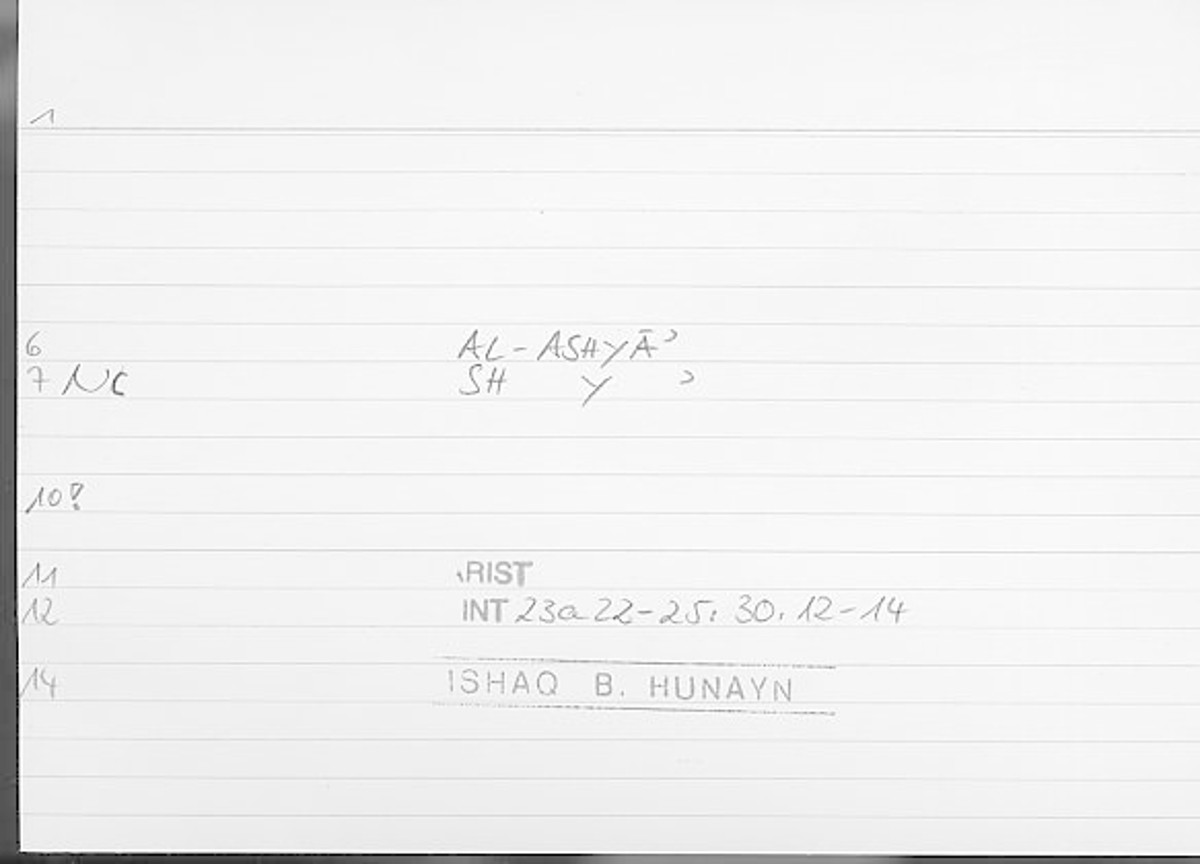 1
6 AL-ASHYĀʾ
7 NC SH Y ʾ
10?
11 ARIST
12 INT 23a 22-25; 30, 12-14
14 ISHAQ B. HUNAYN